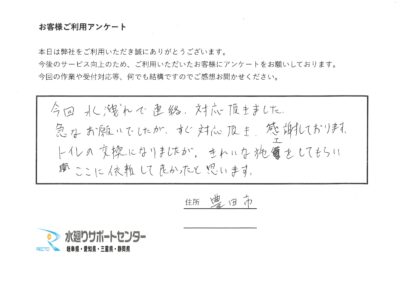 お客様ご利用アンケート
本日は弊社をご利用いただき誠にありがとうございます。
今後のサービス向上のため、ご利用いただいたお客様にアンケートをお願いしております。
今回の作業や受付対応等、何でも結構ですのでご感想お聞かせください。
今回水漏れで連絡、対応頂きました。
急なお願いでしたが、すぐ対応頂き、感謝しております。
トイレの交換になりましたが、きれいな施工をしてもらい
ここに依頼して良かったと思います。
住所 豊田市
RECTO 水廻りサポートセンター
岐阜県・愛知県・三重県・静岡県